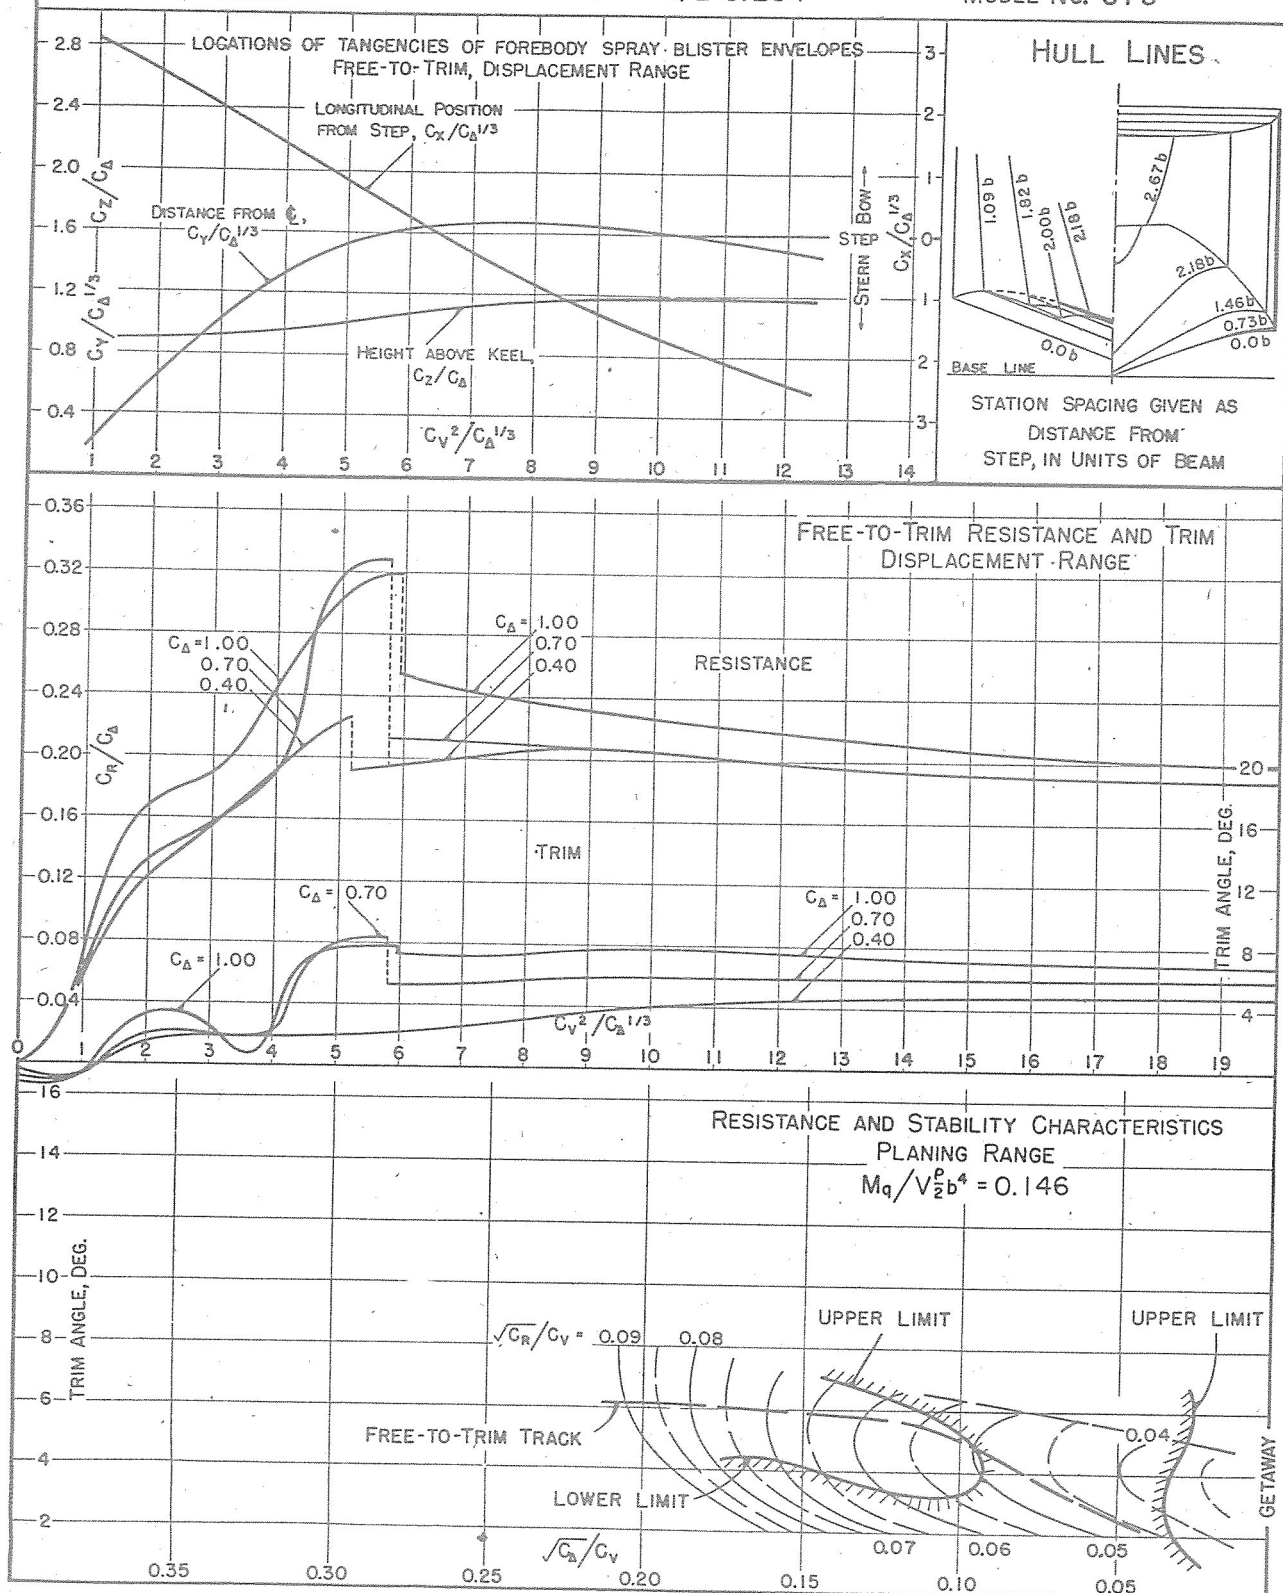 MODEL NO.
LOCATIONS OF TANGENCIES OF FOREBODY SPRAY-BLISTER ENVELOPES
FREE-TO-TRIM, DISPLACEMENT RANGE
LONGITUDINAL POSITION
FROM STEP, Cx/C∆^1/3
DISTANCE FROM ℄,
Cy/C∆^1/3
HEIGHT ABOVE KEEL,
Cz/C∆
2.8
2.4
2.0
1.6
1.2
0.8
0.4
Cy/C∆^1/3 Cz/C∆
Cv²/C∆^1/3
1 2 3 4 5 6 7 8 9 10 11 12 13 14
3
2
1
0
1
2
3
STERN STEP BOW
Cx/C∆^1/3
HULL LINES
1.09 b
1.82 b
2.00b
2.18b
2.67b
2.18b
1.46b
0.73b
0.0b
0.0b
BASE LINE
STATION SPACING GIVEN AS
DISTANCE FROM
STEP, IN UNITS OF BEAM
FREE-TO-TRIM RESISTANCE AND TRIM
DISPLACEMENT RANGE
0.36
0.32
0.28
0.24
0.20
0.16
0.12
0.08
0.04
CR/C∆
C∆=1.00
0.70
0.40
C∆=1.00
0.70
0.40
RESISTANCE
TRIM
C∆= 0.70
C∆= 1.00
C∆= 1.00
0.70
0.40
20
16
12
8
4
TRIM ANGLE, DEG.
Cv²/C∆^1/3
0 1 2 3 4 5 6 7 8 9 10 11 12 13 14 15 16 17 18 19
RESISTANCE AND STABILITY CHARACTERISTICS
PLANING RANGE
Mq/V ρ/2 b⁴ = 0.146
16
14
12
10
8
6
4
2
TRIM ANGLE, DEG.
√CR/Cv = 0.09 0.08
UPPER LIMIT
UPPER LIMIT
FREE-TO-TRIM TRACK
LOWER LIMIT
0.04
0.07 0.06 0.05
GETAWAY
√C∆/Cv
0.35 0.30 0.25 0.20 0.15 0.10 0.05